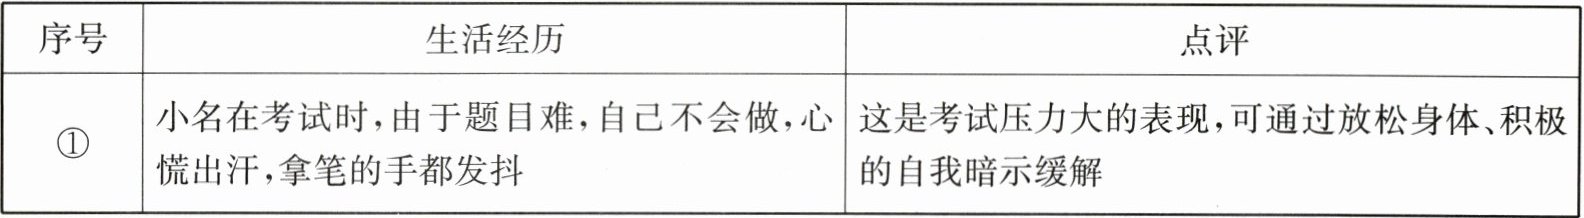 序号 生活经历 点评
① 小名在考试时,由于题目难,自己不会做,心慌出汗,拿笔的手都发抖 这是考试压力大的表现,可通过放松身体、积极的自我暗示缓解